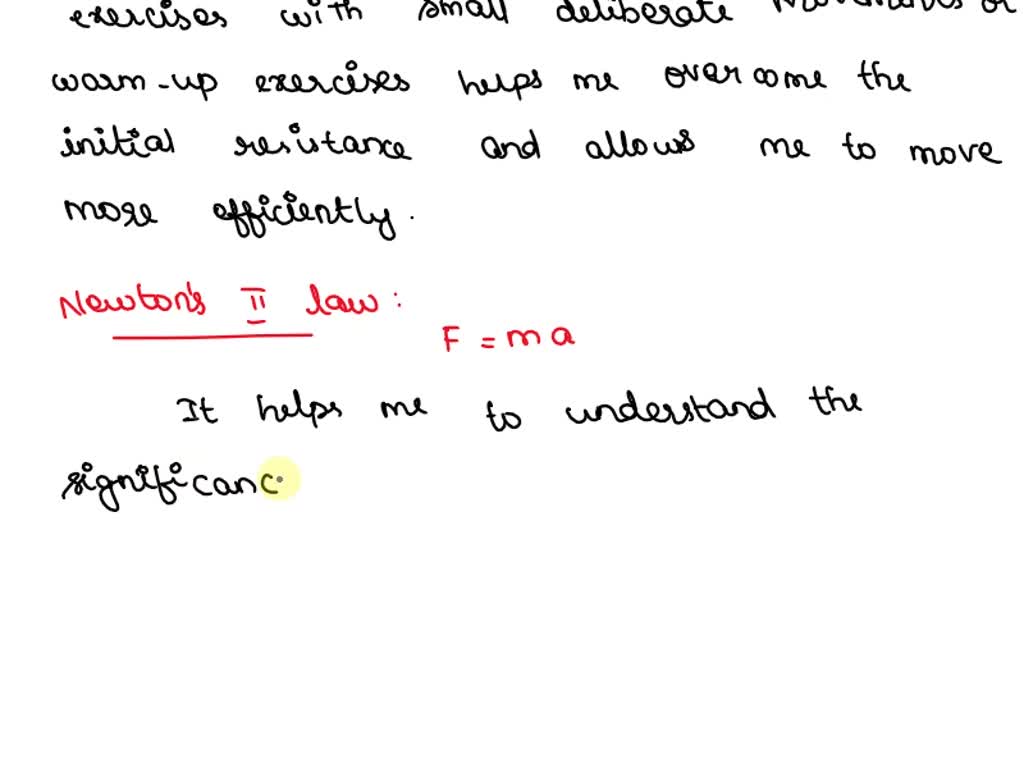 exercises with small deliberate movements or
warm-up exercises helps me overcome the
initial resistance and allows me to move
more efficiently.
Newton's II law:
F = ma
It helps me to understand the
significanc